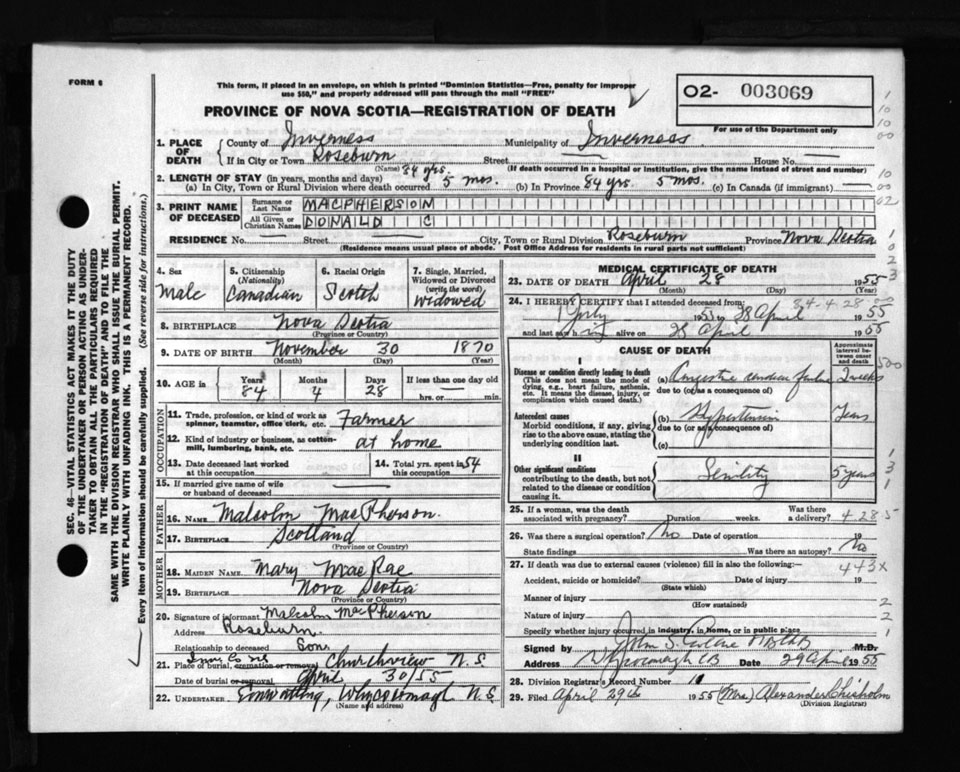 FORM 6
This form, if placed in an envelope, on which is printed "Dominion Statistics—Free, penalty for improper
use $50," and properly addressed will pass through the mail "FREE"
PROVINCE OF NOVA SCOTIA—REGISTRATION OF DEATH
02- 003069
For use of the Department only
1. PLACE OF DEATH County of Inverness Municipality of Inverness
If in City or Town Roseburn Street House No.
(Name) (If death occurred in a hospital or institution, give the name instead)
2. LENGTH OF STAY (in years, months and days)
(a) In City, Town or Rural Division where death occurred 84 yrs. 5 mos. (b) In Province 84 yrs. 5 mos. (c) In Canada (if immigrant)
3. PRINT NAME OF DECEASED Surname or Last Name MACPHERSON
All Given or Christian Names DONALD C
RESIDENCE No. Street City, Town or Rural Division Roseburn Province Nova Scotia
(Residence means usual place of abode. Post Office Address for residents in rural parts not sufficient)
4. Sex Male
5. Citizenship (Nationality) Canadian
6. Racial Origin Scotch
7. Single, Married, Widowed or Divorced (write the word) Widowed
8. BIRTHPLACE Nova Scotia
(Province or Country)
9. DATE OF BIRTH November 30 1870
(Month) (Day) (Year)
10. AGE in Years 84 Months 4 Days 28 If less than one day old hrs. or min.
OCCUPATION
11. Trade, profession, or kind of work as spinner, teamster, office clerk, etc. Farmer
12. Kind of industry or business, as cotton-mill, lumbering, bank, etc. at home
13. Date deceased last worked at this occupation
14. Total yrs. spent in this occupation 54
15. If married give name of wife or husband of deceased
FATHER
16. NAME Malcolm MacPherson.
17. BIRTHPLACE Scotland
(Province or Country)
MOTHER
18. MAIDEN NAME Mary MacRae
19. BIRTHPLACE Nova Scotia
(Province or Country)
20. Signature of informant Malcolm McPherson
Address Roseburn.
Relationship to deceased Son
21. Place of burial, cremation or removal Churchview N.S.
Date of burial or removal April 30/55
22. UNDERTAKER Whycocomagh N.S.
(Name and address)
MEDICAL CERTIFICATE OF DEATH
23. DATE OF DEATH April 28 1955
(Month) (Day) (Year)
24. I HEREBY CERTIFY that I attended deceased from:
1953 to 28 April 1955
and last saw him alive on 28 April 1955
84-4-28
CAUSE OF DEATH
Approximate interval between onset and death
I
Disease or condition directly leading to death
(This does not mean the mode of dying, e.g., heart failure, asthenia, etc. It means the disease, injury, or complication which caused death.)
(a) Congestive cardiac failure 2 weeks
due to (or as a consequence of)
Antecedent causes
Morbid conditions, if any, giving rise to the above cause, stating the underlying condition last.
(b) Hypertension Years
due to (or as a consequence of)
(c)
II
Other significant conditions
contributing to the death, but not related to the disease or condition causing it.
Senility 5 years
25. If a woman, was the death associated with pregnancy? Duration weeks. Was there a delivery? 4-28-5
26. Was there a surgical operation? No Date of operation 19
State findings Was there an autopsy? No
27. If death was due to external causes (violence) fill in also the following: 443X
Accident, suicide or homicide? Date of injury 19
(State which)
Manner of injury
(How sustained)
Nature of injury
Specify whether injury occurred in industry, in home, or in public place
Signed by M.D.
Address Whycocomagh CB Date 29 April 1955
28. Division Registrar's Record Number 11
29. Filed April 29th 1955 (Mrs) Alexander Chisholm
(Division Registrar)
SEC. 46—VITAL STATISTICS ACT MAKES IT THE DUTY
OF THE UNDERTAKER OR PERSON ACTING AS UNDER-
TAKER TO OBTAIN ALL THE PARTICULARS REQUIRED
IN THE "REGISTRATION OF DEATH" AND TO FILE THE
SAME WITH THE DIVISION REGISTRAR WHO SHALL ISSUE THE BURIAL PERMIT.
WRITE PLAINLY WITH UNFADING INK. THIS IS A PERMANENT RECORD.
Every item of information should be carefully supplied. (See reverse side for instructions.)